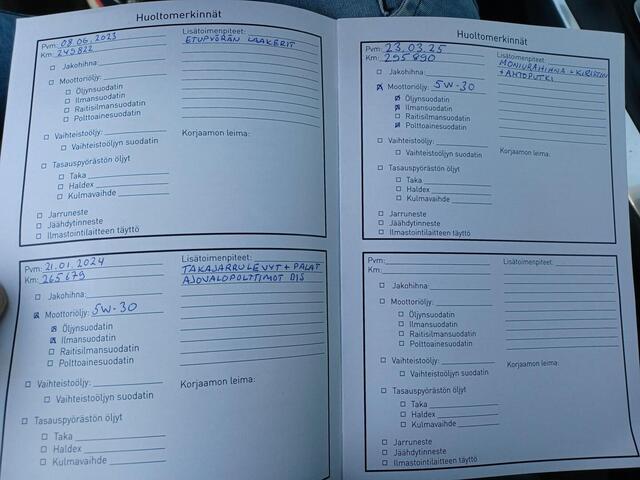 Huoltomerkinnät
Pvm: 08.06.2023
Km: 249822
☐ Jakohihna:
☐ Moottoriöljy:
☐ Öljynsuodatin
☐ Ilmansuodatin
☐ Raitisilmansuodatin
☐ Polttoainesuodatin
☐ Vaihteistoöljy:
☐ Vaihteistoöljyn suodatin
☐ Tasauspyörästön öljyt
☐ Taka
☐ Haldex
☐ Kulmavaihde
☐ Jarruneste
☐ Jäähdytinneste
☐ Ilmastointilaitteen täyttö
Lisätoimenpiteet:
ETUPYÖRÄN LAAKERIT
Korjaamon leima:
Pvm: 21.01.2024
Km: 265679
☐ Jakohihna:
☒ Moottoriöljy: 5W-30
☒ Öljynsuodatin
☒ Ilmansuodatin
☐ Raitisilmansuodatin
☐ Polttoainesuodatin
☐ Vaihteistoöljy:
☐ Vaihteistoöljyn suodatin
☐ Tasauspyörästön öljyt
☐ Taka
☐ Haldex
☐ Kulmavaihde
Lisätoimenpiteet:
TAKAJARRULEVYT + PALAT
AJOVALOPOLTTIMOT D1S
Korjaamon leima:
Huoltomerkinnät
Pvm: 23.03.25
Km: 295890
☐ Jakohihna:
☒ Moottoriöljy: 5W-30
☒ Öljynsuodatin
☒ Ilmansuodatin
☐ Raitisilmansuodatin
☒ Polttoainesuodatin
☐ Vaihteistoöljy:
☐ Vaihteistoöljyn suodatin
☐ Tasauspyörästön öljyt
☐ Taka
☐ Haldex
☐ Kulmavaihde
☐ Jarruneste
☐ Jäähdytinneste
☐ Ilmastointilaitteen täyttö
Lisätoimenpiteet:
MONIURAHIHNA + KIRISTIN
+ AHTOPUTKI
Korjaamon leima:
Pvm:
Km:
☐ Jakohihna:
☐ Moottoriöljy:
☐ Öljynsuodatin
☐ Ilmansuodatin
☐ Raitisilmansuodatin
☐ Polttoainesuodatin
☐ Vaihteistoöljy:
☐ Vaihteistoöljyn suodatin
☐ Tasauspyörästön öljyt
☐ Taka
☐ Haldex
☐ Kulmavaihde
☐ Jarruneste
☐ Jäähdytinneste
☐ Ilmastointilaitteen täyttö
Lisätoimenpiteet:
Korjaamon leima: